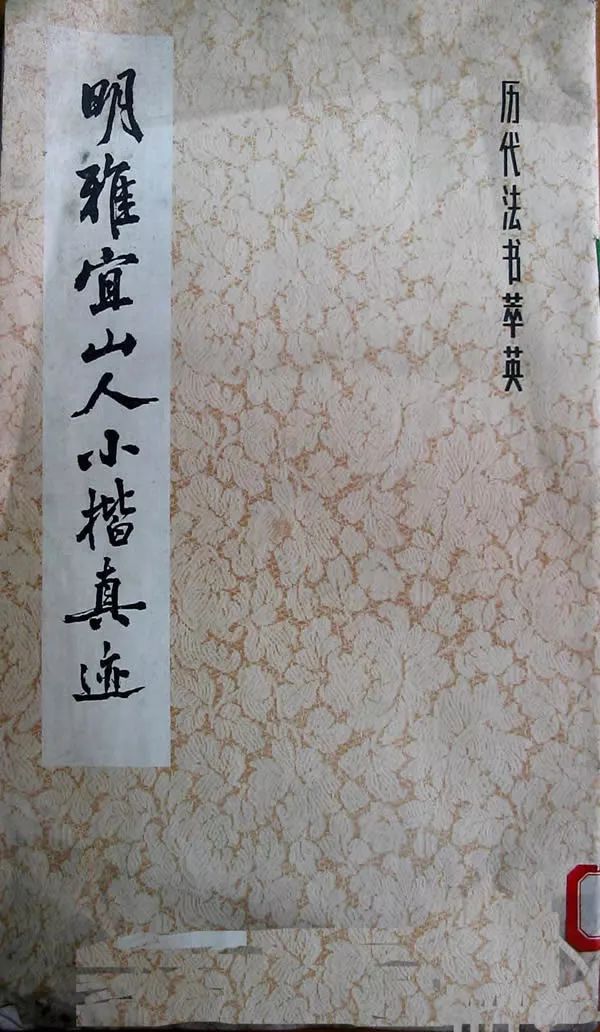 历代法书萃英
明雅宜山人小楷真迹